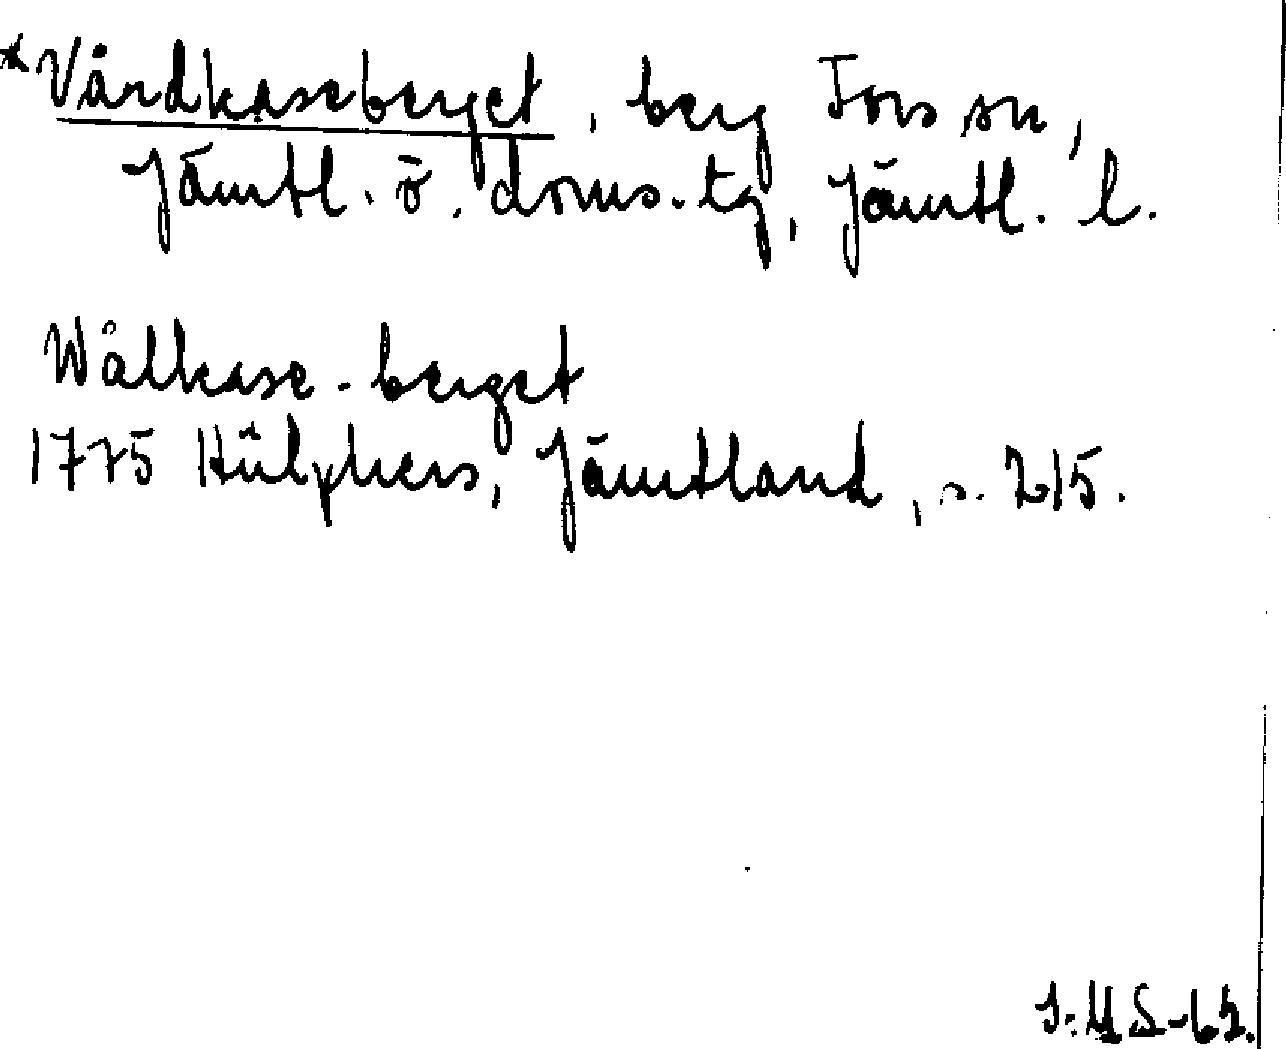 *Vårdkaseberget, berg Fors sn,
Jämtl. ö. doms. tg, Jämtl. l.
Wålkase-berget
1775 Hülphers, Jämtland, s. 215.